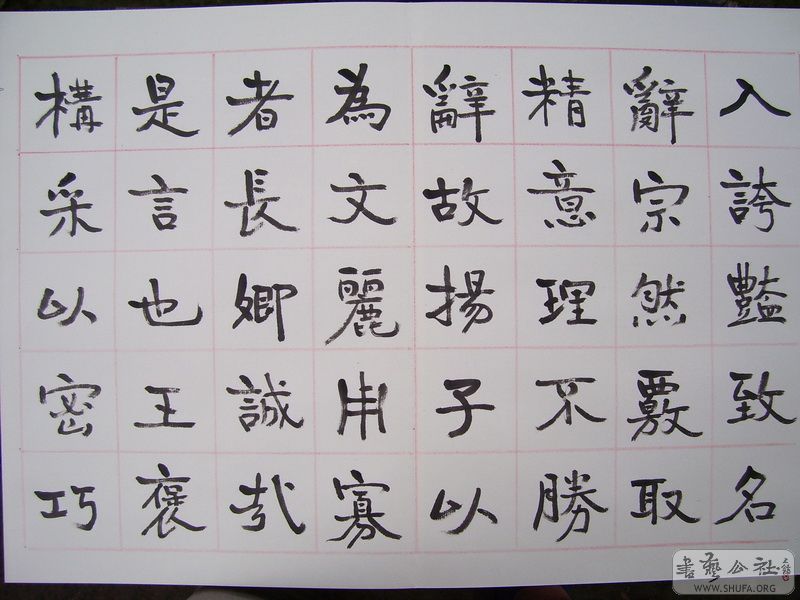 入誇豔致名
辭宗然覈取
精意理不勝
辭故揚子以
為文麗用寡
者長卿誠哉
是言也王褒
構采以密巧
書藝公社
WWW.SHUFA.ORG